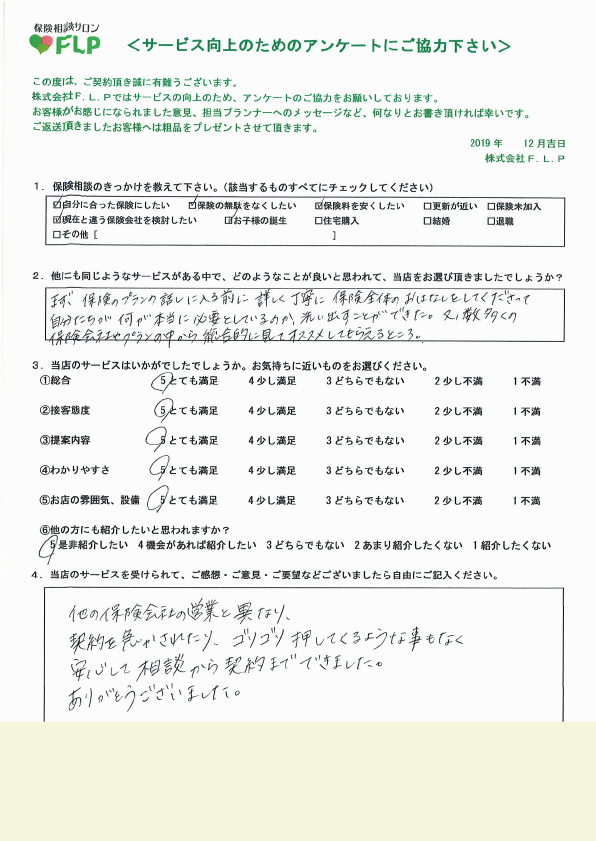 保険相談サロン
FLP
＜サービス向上のためのアンケートにご協力下さい＞
この度は、ご契約頂き誠に有難うございます。
株式会社F．L．Pではサービスの向上のため、アンケートのご協力をお願いしております。
お客様がお感じになられました意見、担当プランナーへのメッセージなど、何なりとお書き頂ければ幸いです。
ご返送頂きましたお客様へは粗品をプレゼントさせて頂きます。
2019 年　12 月吉日
株式会社F．L．P
1．保険相談のきっかけを教えて下さい。（該当するものすべてにチェックしてください）
☑自分に合った保険にしたい ☑保険の無駄をなくしたい ☑保険料を安くしたい □更新が近い □保険未加入
☑現在と違う保険会社を検討したい ☑お子様の誕生 □住宅購入 □結婚 □退職
□その他［ ］
2．他にも同じようなサービスがある中で、どのようなことが良いと思われて、当店をお選び頂きましたでしょうか？
まず、保険のプランの話しに入る前に 詳しく丁寧に 保険全体のおはなしをしてくださって
自分たちが 何が本当に必要としているのか、洗い出すことができた。又、数多くの
保険会社やプランの中から総合的に見てオススメしてもらえるところ。
3．当店のサービスはいかがでしたでしょうか。お気持ちに近いものをお選びください。
①総合 5とても満足 4少し満足 3どちらでもない 2少し不満 1不満
②接客態度 5とても満足 4少し満足 3どちらでもない 2少し不満 1不満
③提案内容 5とても満足 4少し満足 3どちらでもない 2少し不満 1不満
④わかりやすさ 5とても満足 4少し満足 3どちらでもない 2少し不満 1不満
⑤お店の雰囲気、設備 5とても満足 4少し満足 3どちらでもない 2少し不満 1不満
⑥他の方にも紹介したいと思われますか？
5是非紹介したい 4機会があれば紹介したい 3どちらでもない 2あまり紹介したくない 1紹介したくない
4．当店のサービスを受けられて、ご感想・ご意見・ご要望などございましたら自由にご記入ください。
他の保険会社の営業と異なり、
契約を急かされたり、ゴリゴリ押してくるような事もなく
安心して相談から契約までできました。
ありがとうございました。